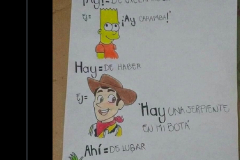 ¡Ay!=
Ej= ¡Ay CARAMBA!"
Hay=DE HABER
Ej= "Hay UNA SERPIENTE
EN MI BOTA"
Ahí=DE LUGAR